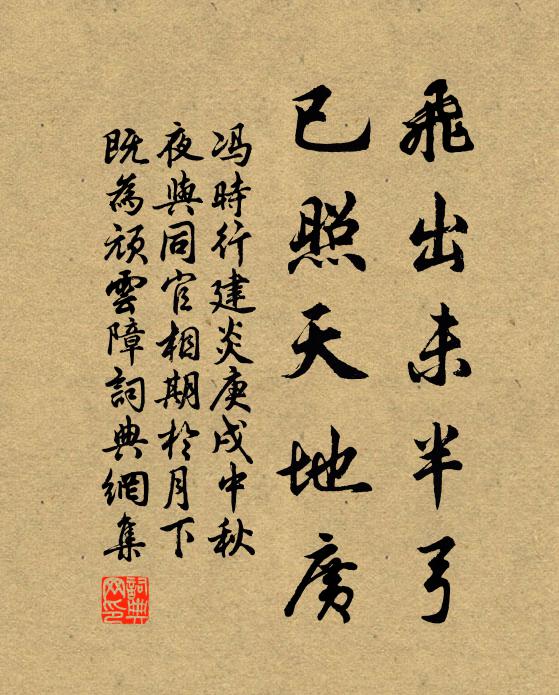 飛出未半弓
已照天地廣
馮時行建炎庚戌中秋
夜與同官相期於月下
既為頑雲障詞典網集
詞典网印